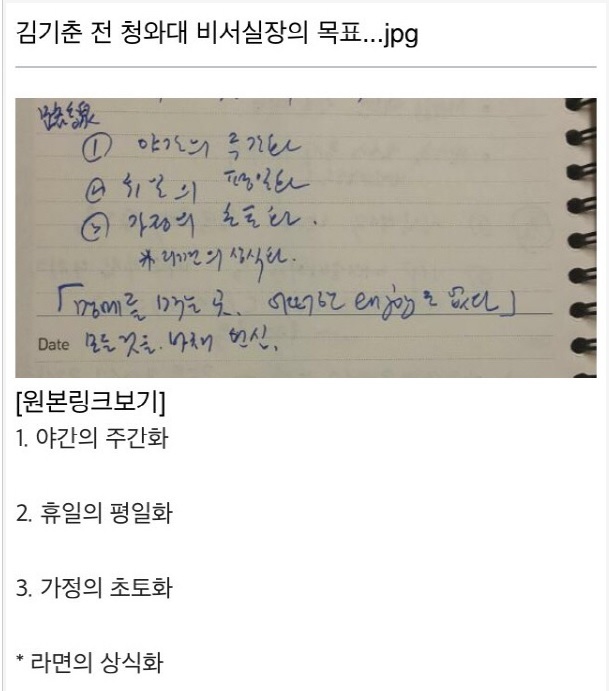 김기춘 전 청와대 비서실장의 목표...jpg
① 야간의 주간화
② 휴일의 평일화
③ 가정의 초토화.
* 라면의 상식화.
「명예를 먹는 곳. 어떠한 enjoy도 없다」
Date 모든 것을. 바쳐 헌신.
[원본링크보기]
1. 야간의 주간화
2. 휴일의 평일화
3. 가정의 초토화
* 라면의 상식화